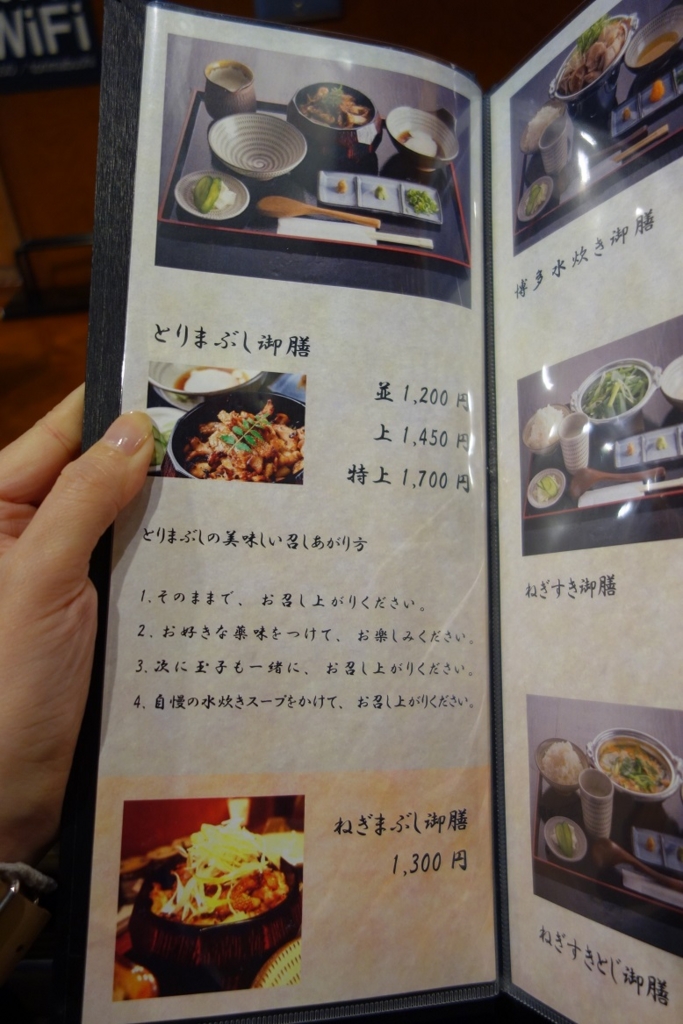 WiFi
とりまぶし御膳
並 1,200 円
上 1,450 円
特上 1,700 円
とりまぶしの美味しい召しあがり方
1. そのままで、 お召し上がりください。
2. お好きな薬味をつけて、 お楽しみください。
3. 次に玉子も一緒に、 お召し上がりください。
4. 自慢の水炊きスープをかけて、 お召し上がりください。
ねぎまぶし御膳
1,300 円
博多水炊き御膳
ねぎすき御膳
ねぎすきとじ御膳